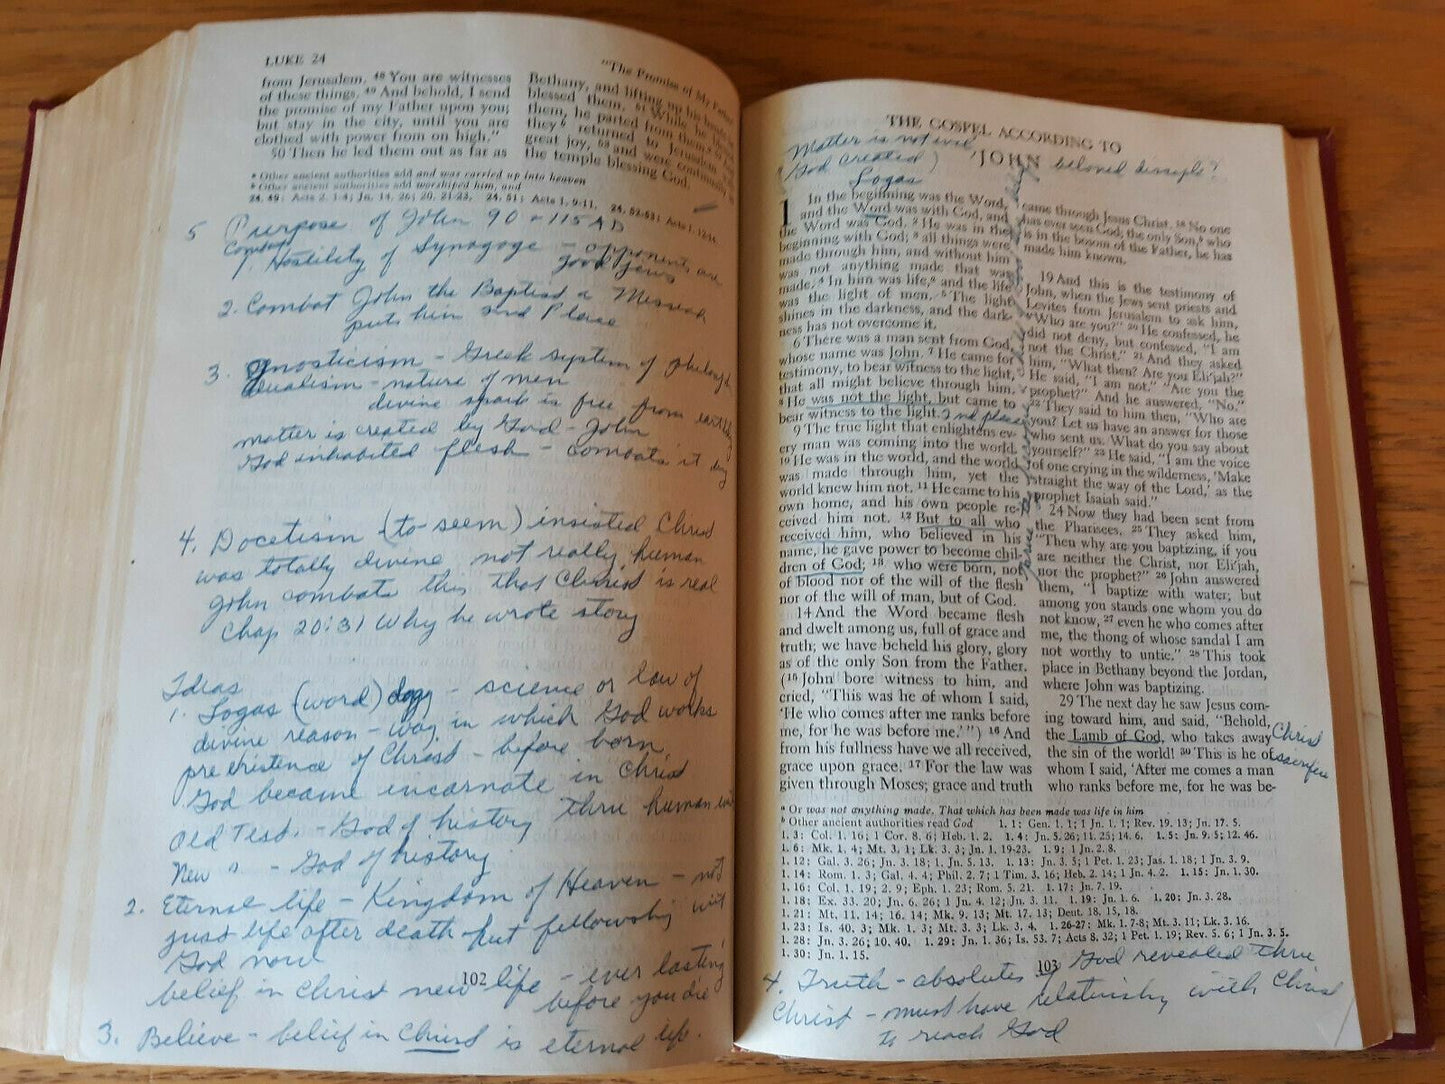 LUKE 24
"The Promise of My Father
from Jerusalem. 48 You are witnesses
of these things. 49 And behold, I send
the promise of my Father upon you;
but stay in the city, until you are
clothed with power from on high."
50 Then he led them out as far as
Bethany, and lifting up his hands
blessed them. 51 While he blessed
them, he parted from them.ᵃ 52 And
they ᵇ returned to Jerusalem with
great joy, 53 and were continually in
the temple blessing God.
ᵃ Other ancient authorities add and was carried up into heaven
ᵇ Other ancient authorities add worshiped him, and
24. 49: Acts 2. 1-4; Jn. 14. 26; 20. 21-23. 24. 51: Acts 1. 9-11. 24. 52-53: Acts 1. 12-14.
5 Purpose of John 90 - 115 AD
Combat
1. Hostility of Synagogue - opponents are
good Jews
2. Combat John the Baptist a Messiah
puts him 2nd Place
3. gnosticism - Greek system of
dualism - nature of men
divine spark is free from
matter is created by God - John
God inhabited flesh - combats it
4. Docetism (to seem) insisted Christ
was totally divine not really human
John combats this that Christ is real
Chap 20:31 Why he wrote story
Ideas
1. Logas (word) logy - science or law of
divine reason - way in which God works
pre existence of Christ - before born
God became incarnate in Christ
Old Test. - God of history thru human
New " - God of history
2. Eternal life - Kingdom of Heaven - not
just life after death but fellowship with
God now
belief in Christ new life - ever lasting
before you die
102
3. Believe - belief in Christ is eternal life.
THE GOSPEL ACCORDING TO
JOHN beloved disciple?
Matter is not evil
(God created)
Logas
1 In the beginning was the Word,
and the Word was with God, and
the Word was God. 2 He was in the
beginning with God; 3 all things were
made through him, and without him
was not anything made that was
made. 4 In him was life,ᵃ and the life
was the light of men. 5 The light
shines in the darkness, and the dark-
ness has not overcome it.
6 There was a man sent from God,
whose name was John. 7 He came for
testimony, to bear witness to the light,
that all might believe through him.
8 He was not the light, but came to
bear witness to the light. 2nd place
9 The true light that enlightens ev-
ery man was coming into the world.
10 He was in the world, and the world
was made through him, yet the
world knew him not. 11 He came to his
own home, and his own people re-
ceived him not. 12 But to all who
received him, who believed in his
name, he gave power to become chil-
dren of God; 13 who were born, not
of blood nor of the will of the flesh
nor of the will of man, but of God.
14 And the Word became flesh
and dwelt among us, full of grace and
truth; we have beheld his glory, glory
as of the only Son from the Father.
(15 John bore witness to him, and
cried, "This was he of whom I said,
'He who comes after me ranks before
me, for he was before me.'") 16 And
from his fullness have we all received,
grace upon grace. 17 For the law was
given through Moses; grace and truth
came through Jesus Christ. 18 No one
has ever seen God; the only Son,ᵇ who
is in the bosom of the Father, he has
made him known.
19 And this is the testimony of
John, when the Jews sent priests and
Levites from Jerusalem to ask him,
"Who are you?" 20 He confessed, he
did not deny, but confessed, "I am
not the Christ." 21 And they asked
him, "What then? Are you Eli′jah?"
He said, "I am not." "Are you the
prophet?" And he answered, "No."
22 They said to him then, "Who are
you? Let us have an answer for those
who sent us. What do you say about
yourself?" 23 He said, "I am the voice
of one crying in the wilderness, 'Make
straight the way of the Lord,' as the
prophet Isaiah said."
24 Now they had been sent from
the Pharisees. 25 They asked him,
"Then why are you baptizing, if you
are neither the Christ, nor Eli′jah,
nor the prophet?" 26 John answered
them, "I baptize with water; but
among you stands one whom you do
not know, 27 even he who comes after
me, the thong of whose sandal I am
not worthy to untie." 28 This took
place in Bethany beyond the Jordan,
where John was baptizing.
29 The next day he saw Jesus com-
ing toward him, and said, "Behold,
the Lamb of God, who takes away
the sin of the world! 30 This is he of
whom I said, 'After me comes a man
who ranks before me, for he was be-
Christ
ᵃ Or was not anything made. That which has been made was life in him
ᵇ Other ancient authorities read God 1. 1: Gen. 1. 1; 1 Jn. 1. 1; Rev. 19. 13; Jn. 17. 5.
1. 3: Col. 1. 16; 1 Cor. 8. 6; Heb. 1. 2. 1. 4: Jn. 5. 26; 11. 25; 14. 6. 1. 5: Jn. 9. 5; 12. 46.
1. 6: Mk. 1. 4; Mt. 3. 1; Lk. 3. 3; Jn. 1. 19-23. 1. 9: 1 Jn. 2. 8.
1. 12: Gal. 3. 26; Jn. 3. 18; 1 Jn. 5. 13. 1. 13: Jn. 3. 5; 1 Pet. 1. 23; Jas. 1. 18; 1 Jn. 3. 9.
1. 14: Rom. 1. 3; Gal. 4. 4; Phil. 2. 7; 1 Tim. 3. 16; Heb. 2. 14; 1 Jn. 4. 2. 1. 15: Jn. 1. 30.
1. 16: Col. 1. 19; 2. 9; Eph. 1. 23; Rom. 5. 21. 1. 17: Jn. 7. 19.
1. 18: Ex. 33. 20; Jn. 6. 46; 1 Jn. 4. 12; Jn. 3. 11. 1. 19: Jn. 1. 6. 1. 20: Jn. 3. 28.
1. 21: Mt. 11. 14; 16. 14; Mk. 9. 13; Mt. 17. 13; Deut. 18. 15, 18.
1. 23: Is. 40. 3; Mk. 1. 3; Mt. 3. 3; Lk. 3. 4. 1. 26-27: Mk. 1. 7-8; Mt. 3. 11; Lk. 3. 16.
1. 28: Jn. 3. 26; 10. 40. 1. 29: Jn. 1. 36; Is. 53. 7; Acts 8. 32; 1 Pet. 1. 19; Rev. 5. 6; 1 Jn. 3. 5.
1. 30: Jn. 1. 15.
103
4. Truth - absolutes God revealed thru
Christ - must have relatinship with Christ
to reach God